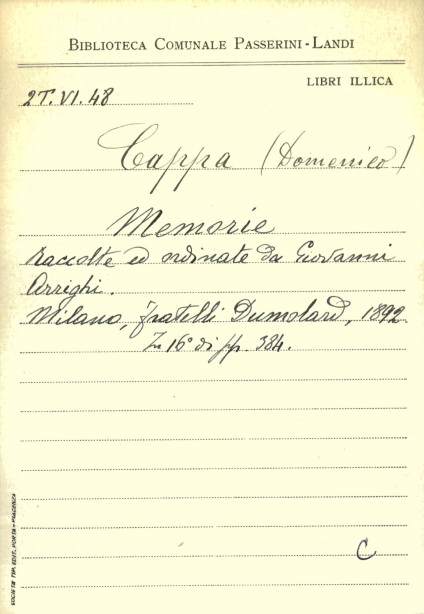 BIBLIOTECA COMUNALE PASSERINI-LANDI
LIBRI ILLICA
2T.VI.48
Cappa (Domenico)
Memorie
raccolte ed ordinate da Giovanni
Arrighi.
Milano, fratelli Dumolard, 1892
In 16° di pp. 384.
C
SOCIETÀ TIP. EDIT. PORTA-PIACENZA